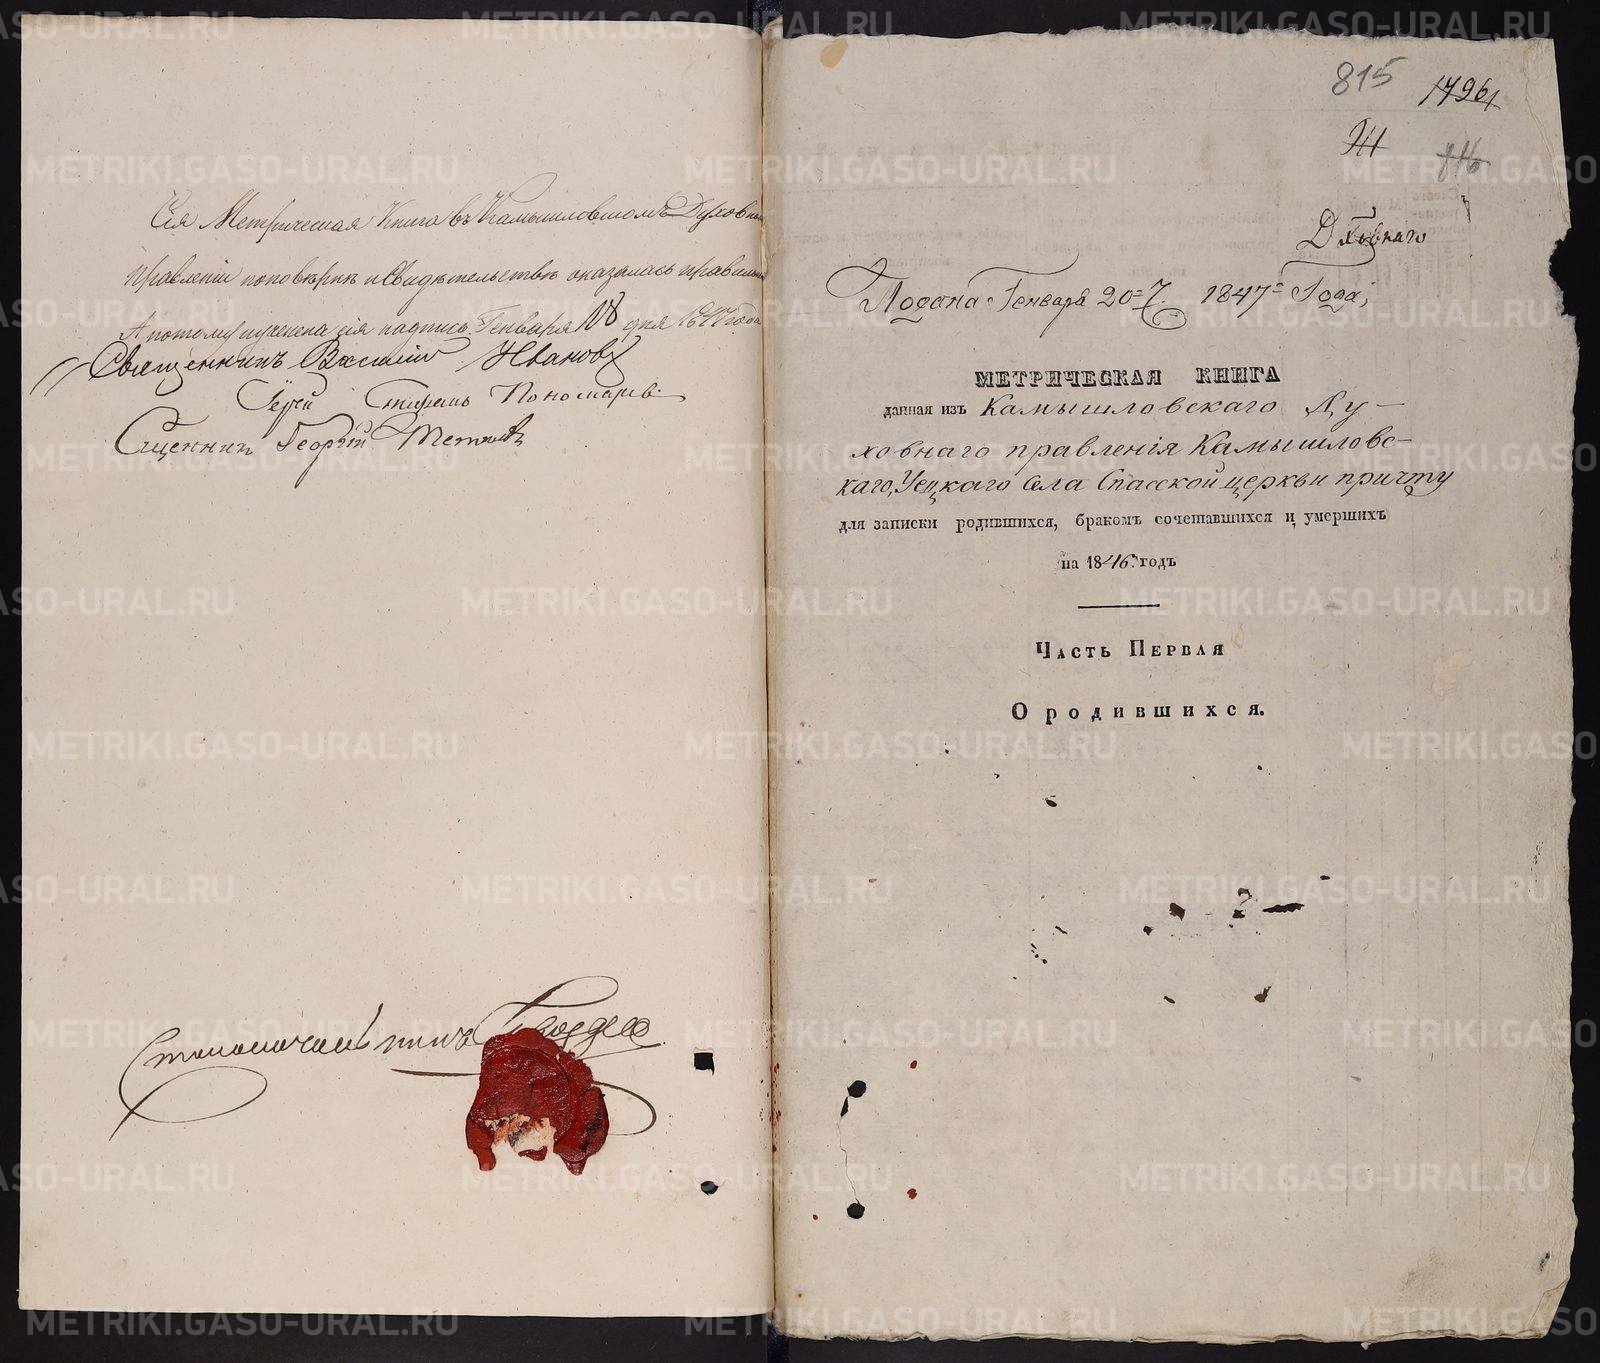 Сія Метрическая Книга въ Камышловскомъ Духовномъ
Правленіи по повѣркѣ и Свидѣтельствѣ оказалась правильною
А потому учинена сія надпись Генваря 18 дня 1847 года
Священникъ Василій Ивановъ
Іерей Пономаревъ
Сщенникъ Георгій
Столоначальникъ
815
1796
Подана Генваря 20-7. 1847 Года,
МЕТРИЧЕСКАЯ КНИГА
данная изъ Камышловскаго Ду-
ховнаго правленія Камышловс-
каго, Уецкаго Села Спасской церкви причту
для записки родившихся, бракомъ сочетавшихся и умершихъ
на 1846. годъ
Часть Первая
О родившихся.
METRIKI.GASO-URAL.RU